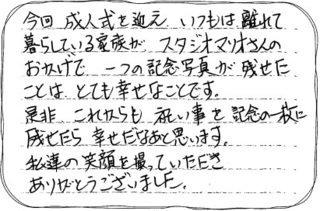 今回 成人式を迎え いつもは離れて
暮らしている家族が スタジオマリオさんの
おかげで 一つの記念写真が残せた
ことは とても幸せなことです。
是非 これからも 祝い事を記念の一枚に
残せたら 幸せだなあと思います。
私達の笑顔を撮っていただき
ありがとうございました。